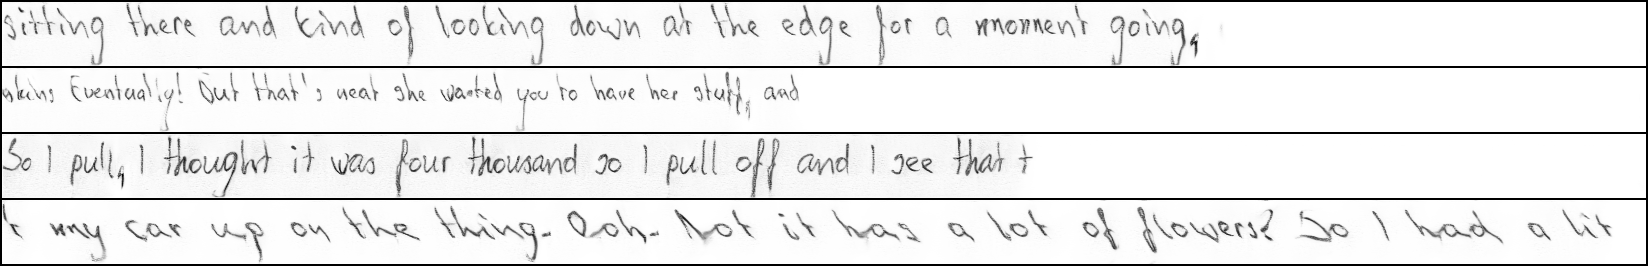 sitting there and kind of looking down at the edge for a moment going,
Eventually! But that's neat she wanted you to have her stuff, and
So I pull, I thought it was four thousand so I pull off and I see that t
t my car up on the thing. Ooh. Not it has a lot of flowers? So I had a lit